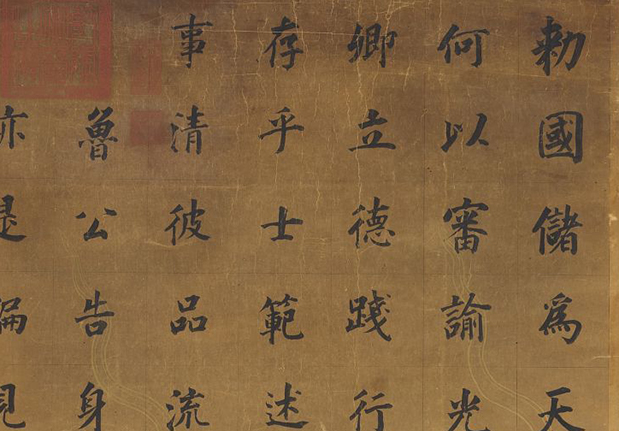 勅國儲爲天
何以審諭光
卿立德踐行
存乎士範述
事清彼品流
魯公告身
亦是偏見